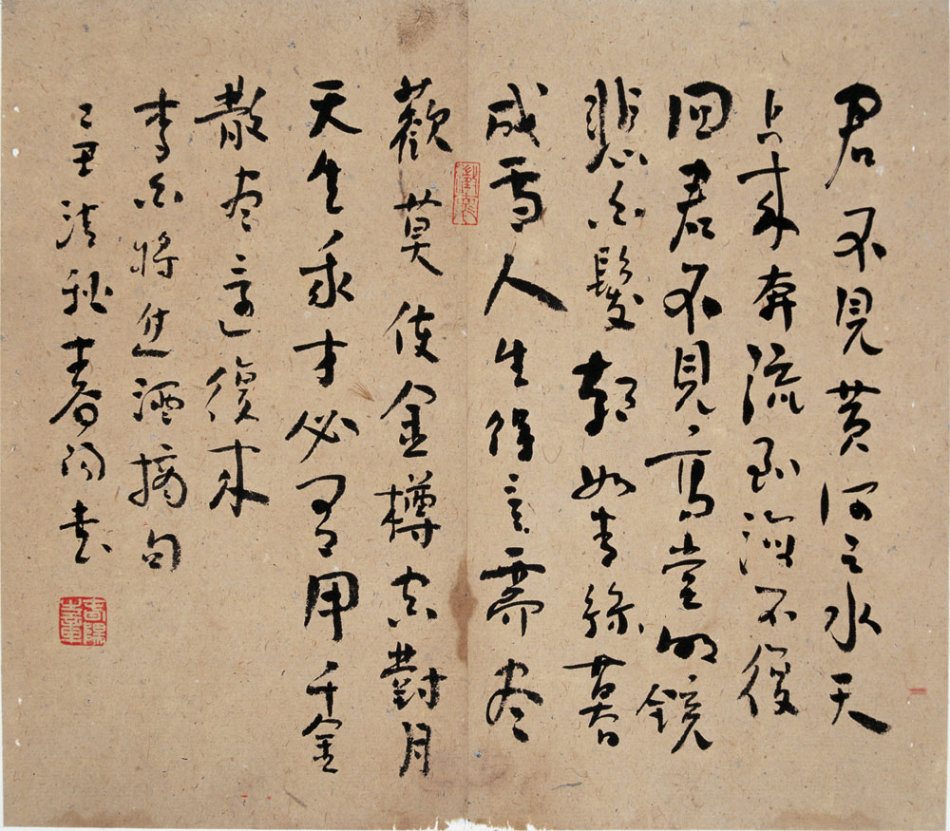 君不見黄河之水天
上来奔流到海不復
回君不見高堂明鏡
悲白髮朝如青絲暮
成雪人生得意需尽
歡莫使金樽空對月
天生我才必有用千金
散尽还復来
李白將进酒摘句
己丑清秋春书